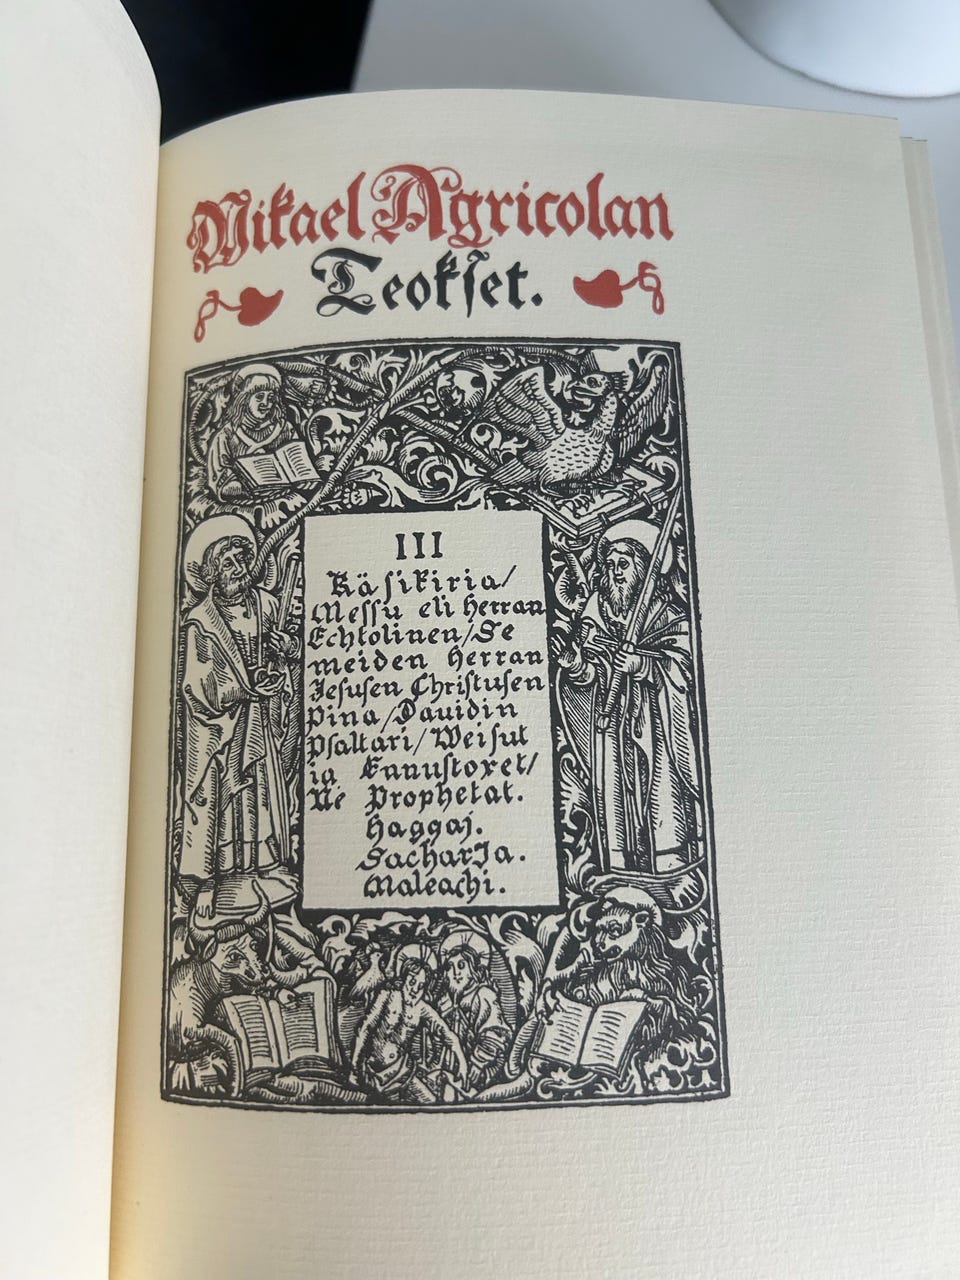 Mikael Agricolan
Teokset.
III
Käsikiria/
Messu eli Herran
Echtolinen/Se
meiden Herran
Jesusen Christusen
Pina/Dauidin
Psaltari/Weisut
ia Ennustoxet/
Ne Prophetat.
Haggaj.
SacharJa.
Maleachi.